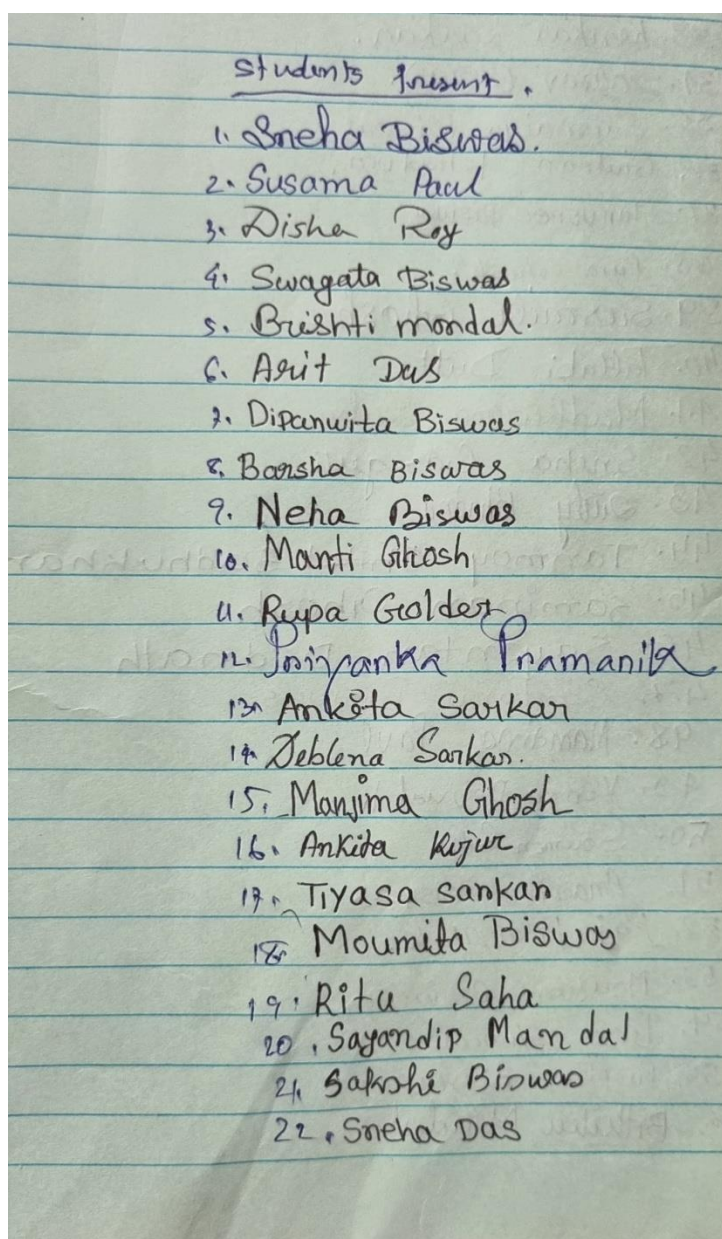 Students Present.
1. Sneha Biswas.
2. Susama Paul
3. Disha Roy
4. Swagata Biswas
5. Brishti mondal.
6. Arit Das
7. Dipanwita Biswas
8. Barsha Biswas
9. Neha Biswas
10. Manti Ghosh
11. Rupa Golder
12. Priyanka Pramanik
13. Ankita Sarkar
14. Deblena Sarkar.
15. Manjima Ghosh
16. Ankita Kujur
17. Tiyasa Sarkar
18. Moumita Biswas
19. Ritu Saha
20. Sayandip Mandal
21. Sakshi Biswas
22. Sneha Das